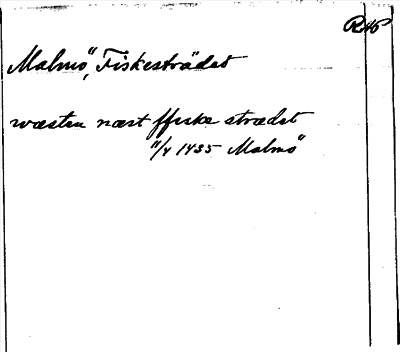 Malmö, Fiskesträdet
wæsten næst ffiske strædet
11/4 1435 Malmö